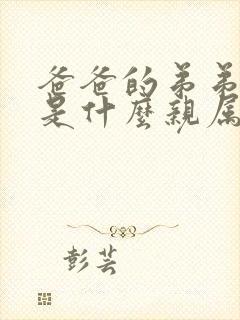 爸爸的弟弟
是什麼親属
彭芸